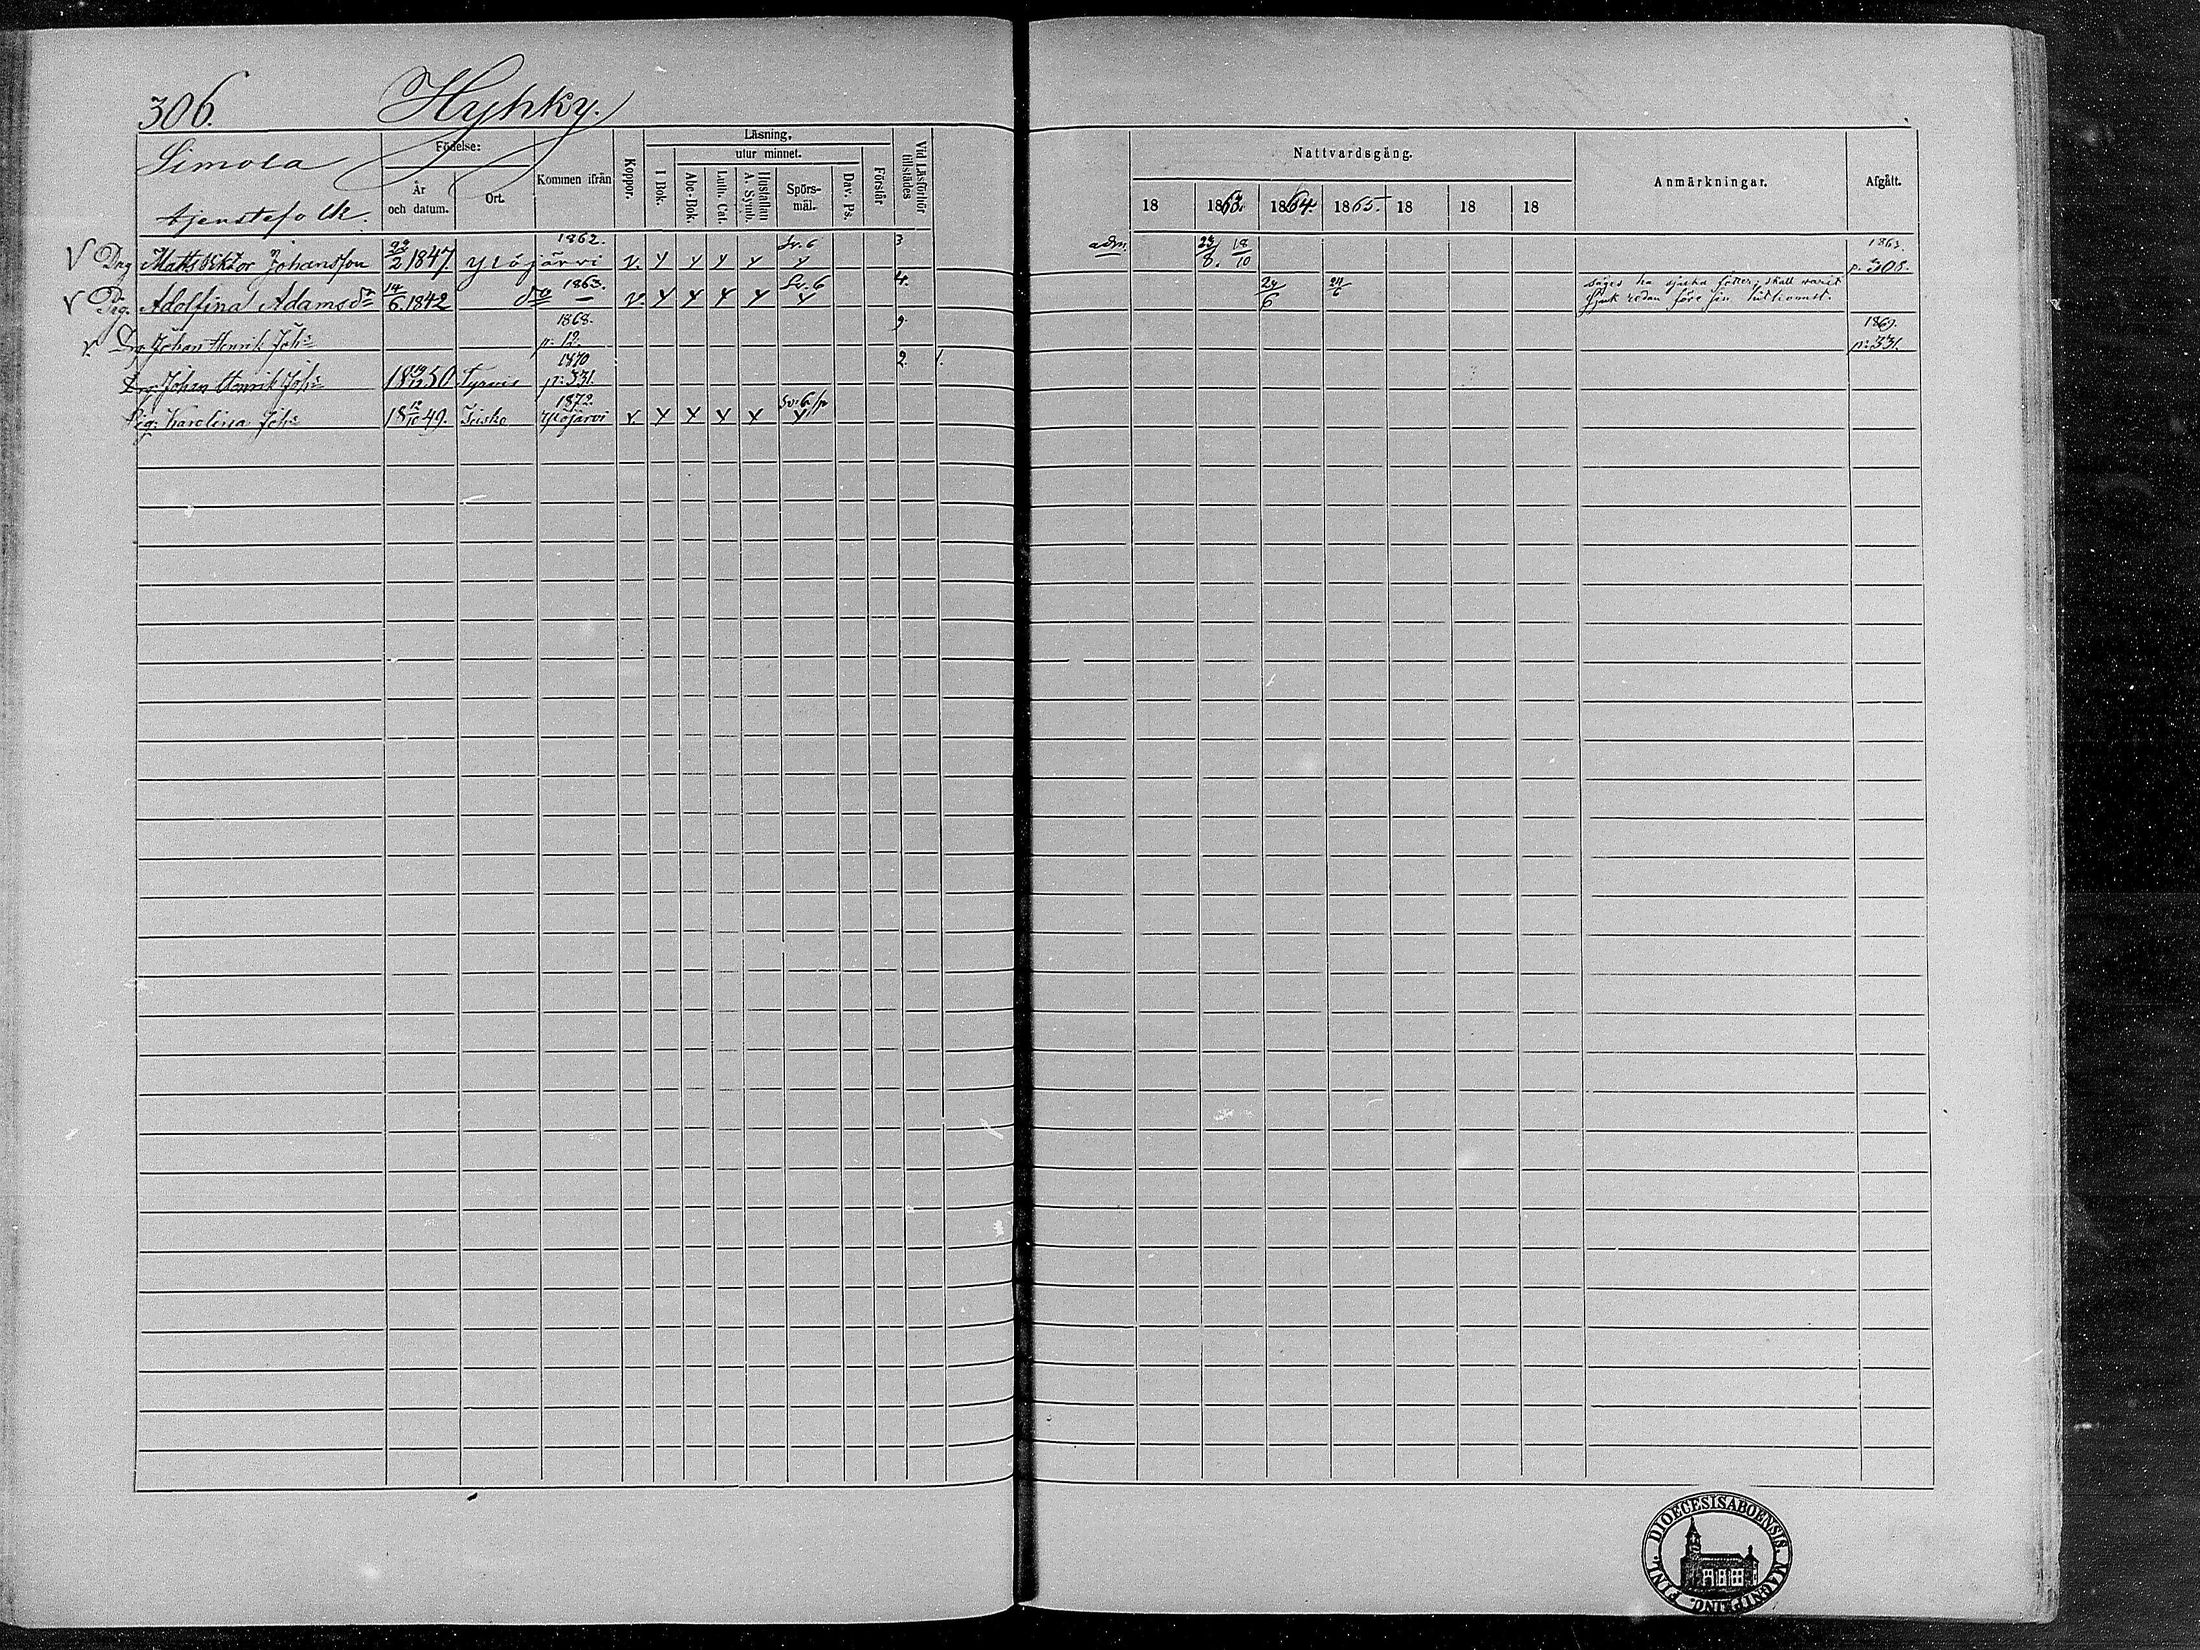 306. Hyhky.
Simola
tjenstefolk.
Födelse:
År och datum.
Ort.
Kommen ifrån
Koppor.
Läsning,
I Bok.
utur minnet.
Abc-Bok.
Luth. Cat.
Hustaflan A. Symb.
Spörs-mål.
Dav. Ps.
Förstår
Vid Läsförhör tillstädes
Nattvardsgång.
18 1863. 1864. 1865. 18 18 18
Anmärkningar.
Afgått.
V Drg Matts Viktor Johansson 22/2 1847 Ylöjärvi 1862. v. Y Y Y Y Sv. 6 Y 3 adm. 23/8. 18/10 1863 p. 308.
V Pig. Adolfina Adamsdr 14/6. 1842 do 1863. v. Y Y Y Y Sv. 6 Y 4. 24/6 24/6 säges ha sjuka fötter, skall varit sjuk redan före sin hitkomst.
v. Drg Johan Henrik Johs 1868. p. 12. 9 1869. p: 331.
Drg Johan Henrik Johs 18 50 Tyrvis 1870 p: 331. 2. 1.
Pig: Karolina Johs 18 12/10 49. Ikis 1872. Ylöjärvi v. Y Y Y Y Sv. 6 Y
FINL. DIOECESIS ABOENSIS. MAGNI PRINC.